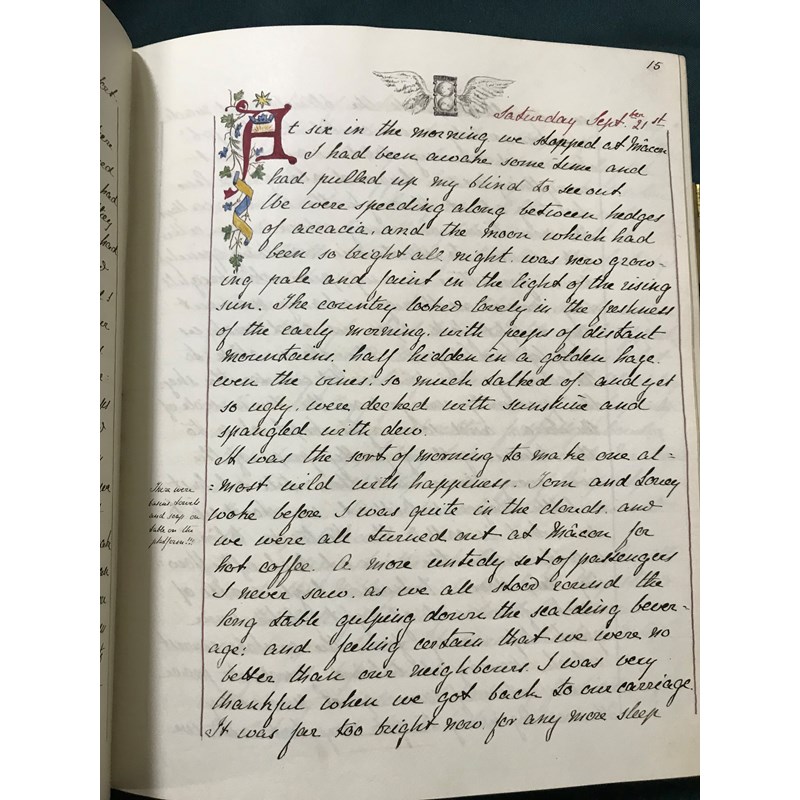 15
Saturday Sept.ber 21st.
At six in the morning we stopped at Mâcon
I had been awake some time and
had pulled up my blind to see out
We were speeding along between hedges
of accacia. and the moon which had
been so bright all night. was now grow-
ing pale and faint in the light of the rising
sun. The country looked lovely in the freshness
of the early morning. with peeps of distant
mountains. half hidden in a golden haze.
even the vines. so much talked of. and yet
so ugly. were decked with sunshine and
spangled with dew.
It was the sort of morning to make one al=
=most wild with happiness. Tom and
woke before I was quite in the clouds. and
There were
basins towels
and soap on
table on the
platform!!!
we were all turned out at Mâcon for
hot coffee. A more untidy set of passengers
I never saw. as we all stood round the
long table gulping down the scalding bever-
age: and feeling certain that we were no
better than our neighbours. I was very
thankful when we got back to our carriage.
It was far too bright now for any more sleep